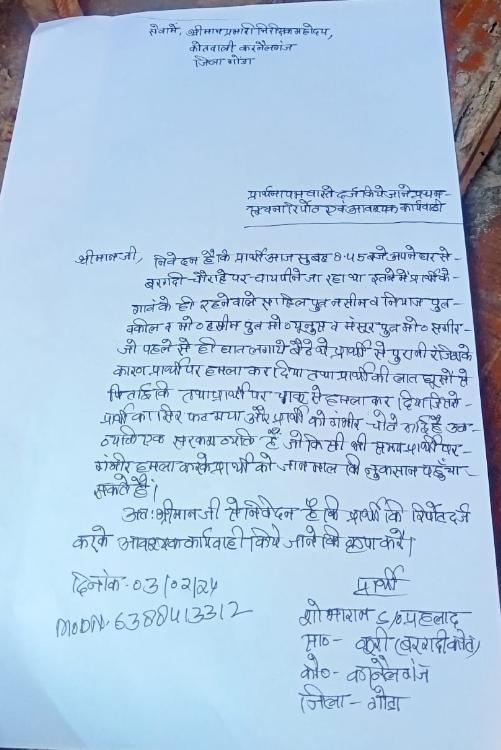 सेवामें, श्रीमान प्रभारी निरीक्षक महोदय,
कोतवाली करनैलगंज
जिला गोंडा
प्रार्थना पत्र वास्ते दर्ज किये जाने प्रथम-
सूचना रिर्पोट एवं आवश्यक कार्यवाही
श्रीमान जी, निवेदन है कि प्रार्थी आज सुबह 8.45 बजे अपने घर से-
बरगदी-चौराहे पर चाय पीने जा रहा था इतने में प्रार्थी के-
गावं के ही रहने वाले साहिल पुत्र नसीम व नियाज पुत्र-
वकील व मो० हसीम पुत्र मो० युनुस व मंसूर पुत्र मो० सगीर-
जो पहले से ही घात लगाये बैठे थे प्रार्थी से पुरानी रंजिश के
कारण प्रार्थी पर हमला कर दिया तथा प्रार्थी की लात घूसों से
पिटाई कि तथा प्रार्थी पर चाकू से हमला कर दिया जिससे-
प्रार्थी का सिर फट गया और प्रार्थी को गंभीर चोटे आई है उक्त-
व्यक्ति एक सरकश व्यक्ति है जो किसी भी समय प्रार्थी पर-
गंभीर हमला करके प्रार्थी को जान माल कि नुकसान पहुँचा-
सकते है।
अत: श्रीमान जी से निवेदन है कि प्रार्थी कि रिर्पोट दर्ज
करके आवश्यक कार्यवाही किये जाने कि कृपा करें।
दिनांक-03/02/24
MODN-6388413312
प्रार्थी
शोभाराम S/O प्रहलाद
सा०- कूरी (बरगदी कोट)
को०- करनैलगंज
जिला-गोंडा